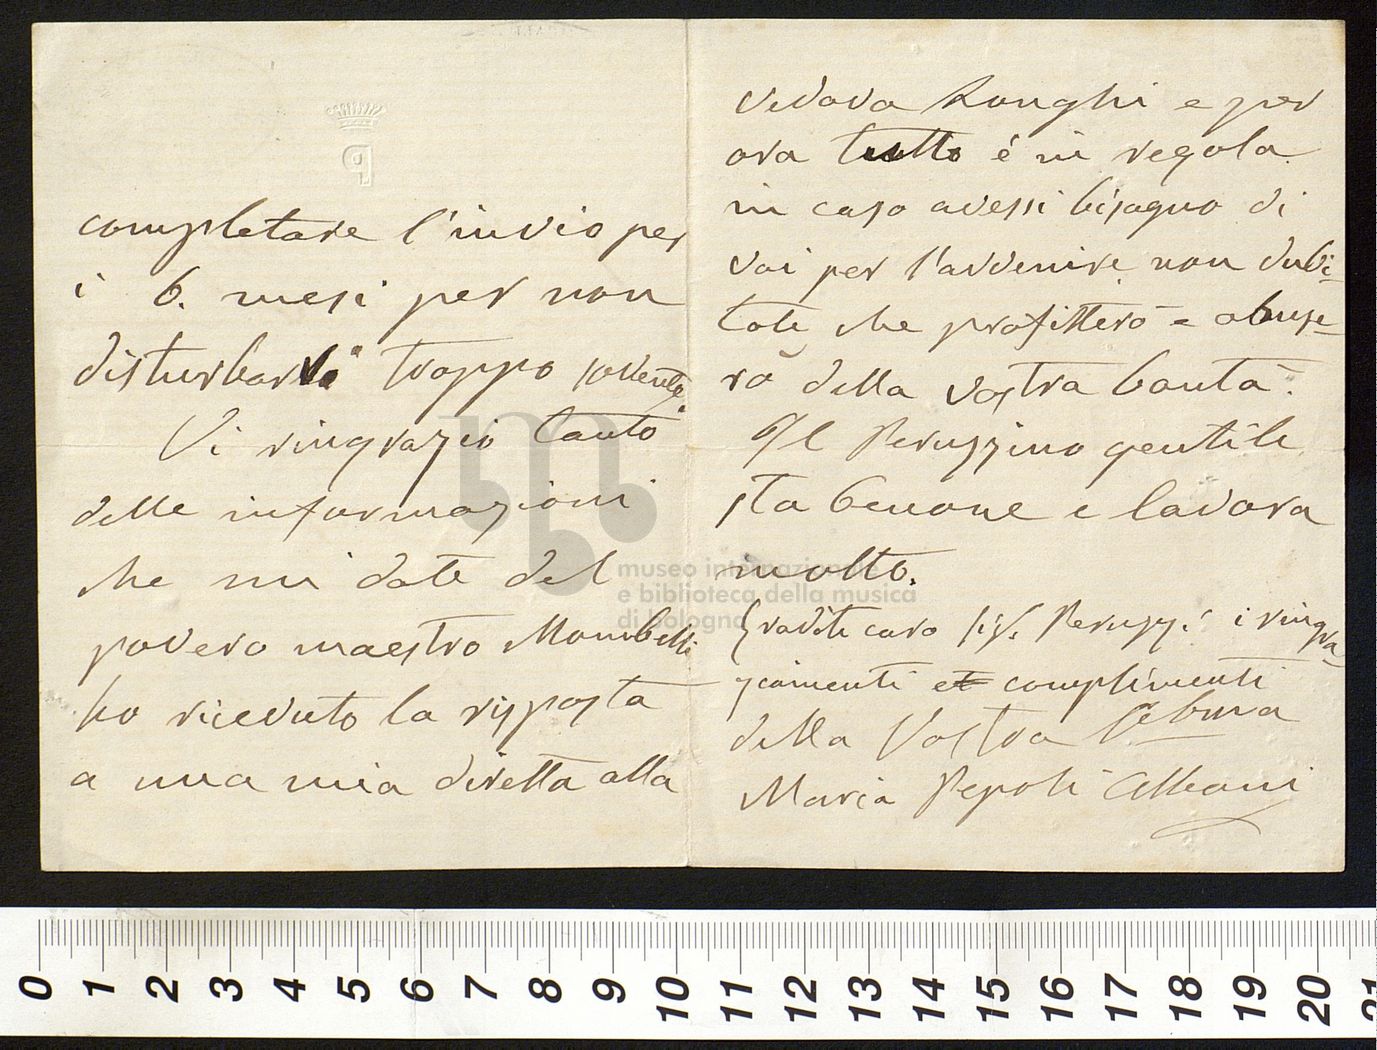 P
completare l'invio per
i 6. mesi per non
disturbarvi troppo sovente.
Vi ringrazio tanto
delle informazioni
che mi date del
povero maestro Mombelli
ho ricevuto la risposta
a una mia diretta alla
vedova Longhi e per
ora tutto è in regola.
in caso avessi bisogno di
voi per l'avvenire non dubi-
tate che profitterò e abuse-
rò della vostra bontà.
Il Peruzzino gentile
sta benone e lavora
molto.
Gradite caro Sig. Peruzzi i ringra-
ziamenti et complimenti
della Vostra
Maria Pepoli Albani
museo internazionale
e biblioteca della musica
di bologna
0 1 2 3 4 5 6 7 8 9 10 11 12 13 14 15 16 17 18 19 20 21